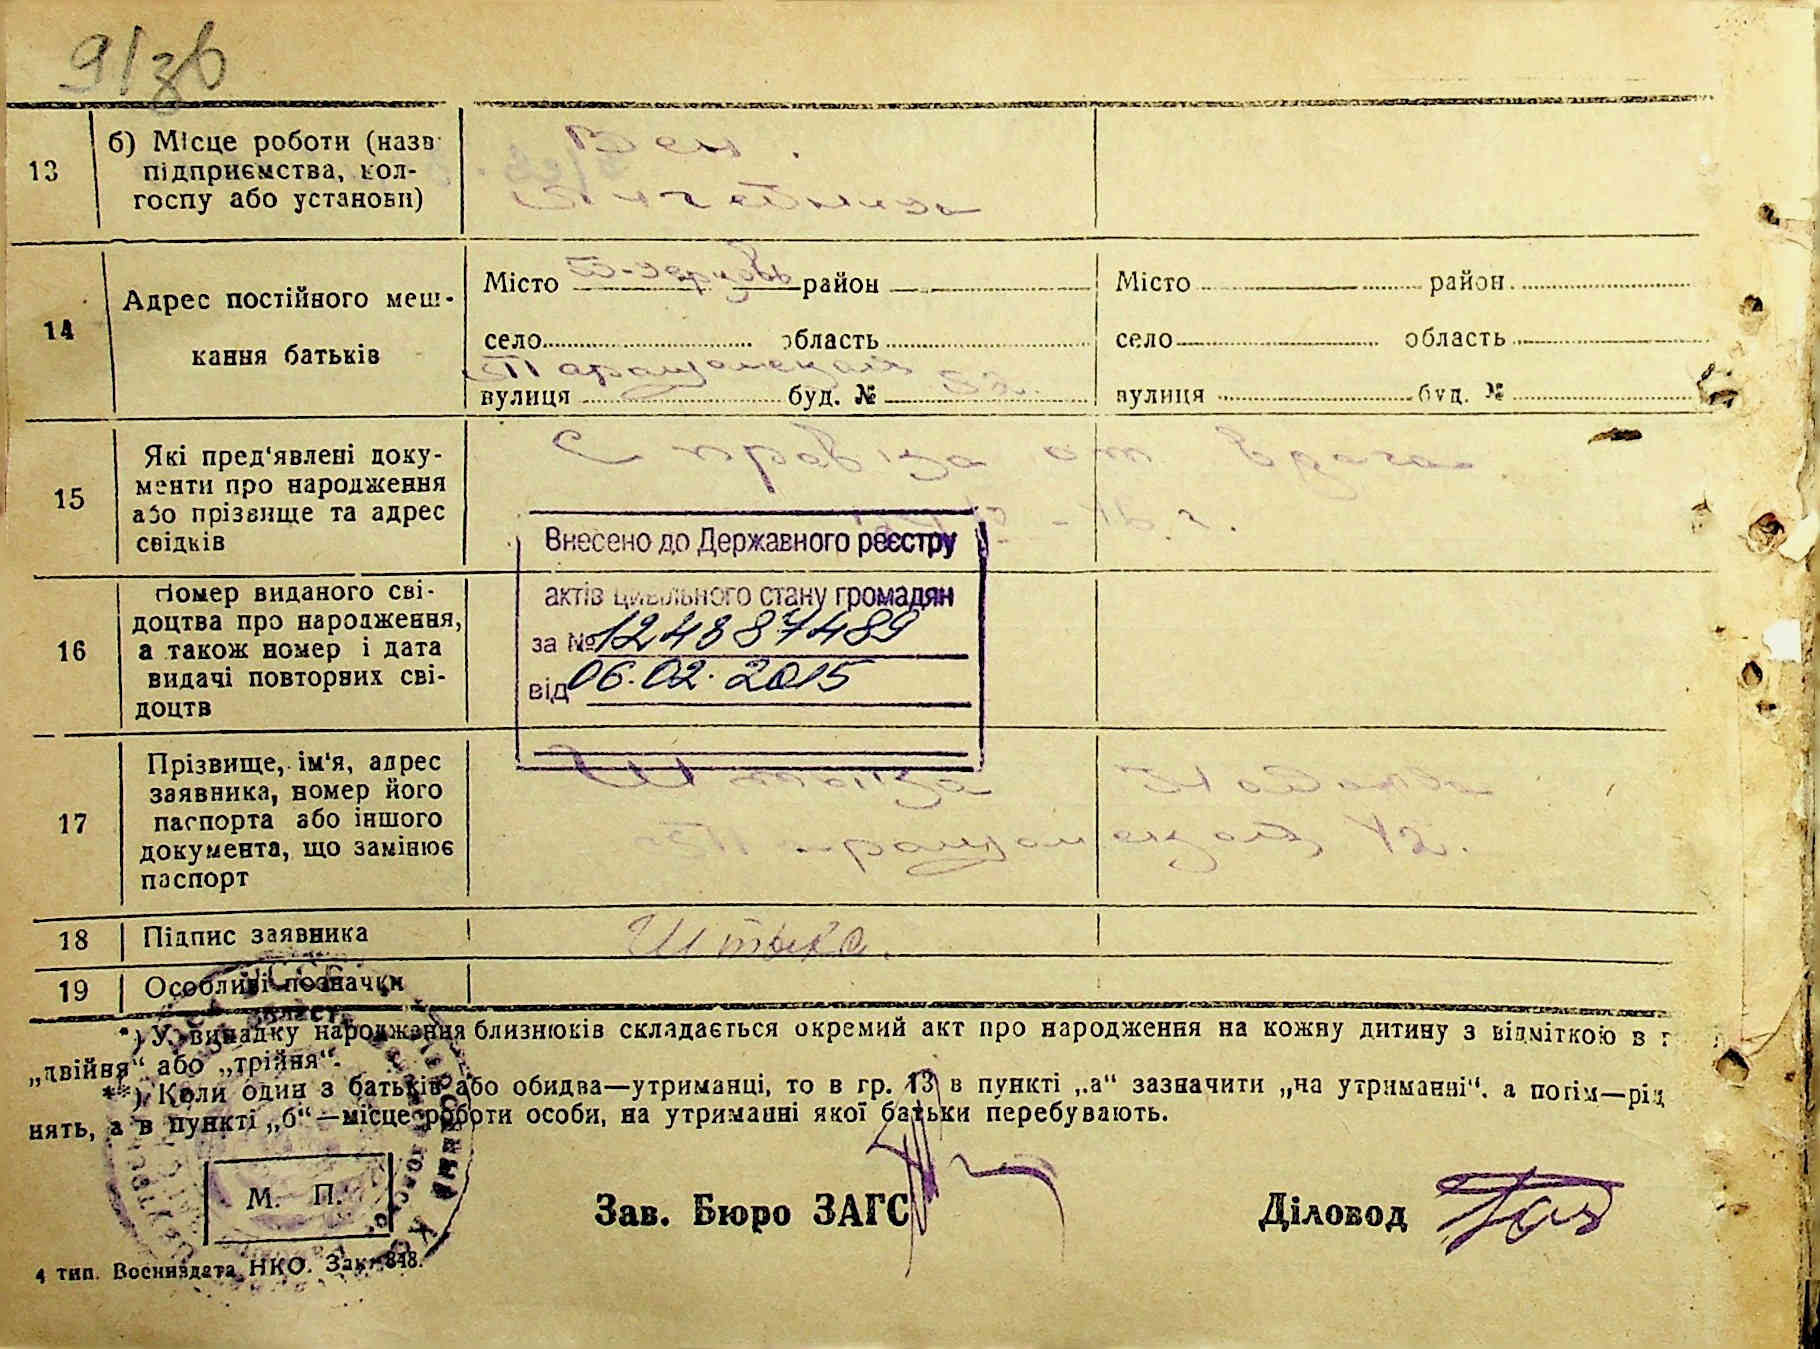 91зв
13
б) Місце роботи (назв
підприємства, кол-
госпу або установи)
Вен.
14
Адрес постійного меш-
кання батьків
Місто Б-Церковь район
село область
Таращанская
вулиця буд. № 53
Місто район
село область
вулиця буд. №
15
Які пред'явлені доку-
менти про народження
або прізвище та адрес
свідків
Справка от врача
16
Номер виданого сві-
доцтва про народження,
а також номер і дата
видачі повторних сві-
доцтв
Внесено до Державного реєстру
актів цивільного стану громадян
за № 124887489
від 06.02.2015
17
Прізвище, ім'я, адрес
заявника, номер його
паспорта або іншого
документа, що замінює
паспорт
Штыка
Таращанская 12.
18
Підпис заявника
Штыка.
19
Особливі позначки
*) У випадку народження близнюків складається окремий акт про народження на кожну дитину з відміткою в г
„двійня“ або „трійня“.
**) Коли один з батьків або обидва—утриманці, то в гр. 13 в пункті „а“ зазначити „на утриманні“, а потім—рід
нять, а в пункті „б“—місце роботи особи, на утриманні якої батьки перебувають.
М. П.
Зав. Бюро ЗАГС
Діловод
4 тип. Воениздата НКО. Зак. 848.